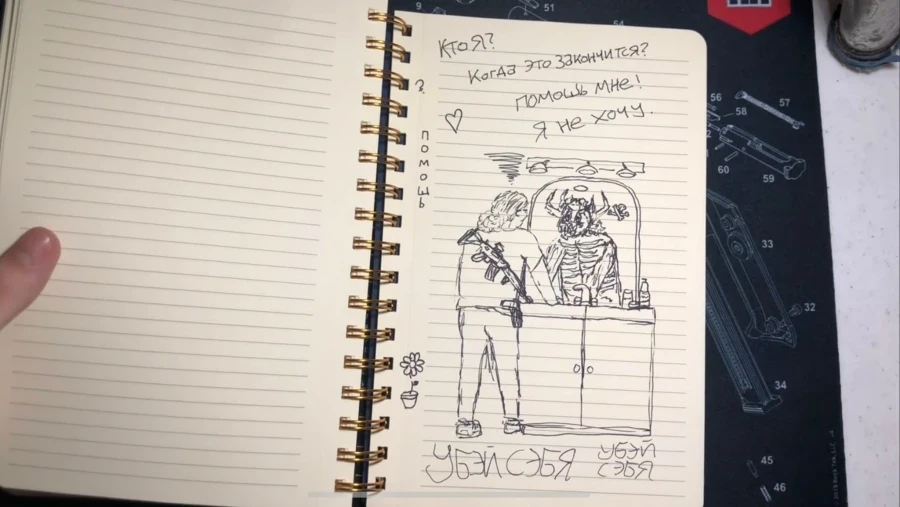 Кто я?
Когда это закончится?
Помошь мне!
Я не хочу.
?
помошь
убэй сэбя
убэй
сэбя
9
51
54
56
57
58
60
59
33
32
34
45
46